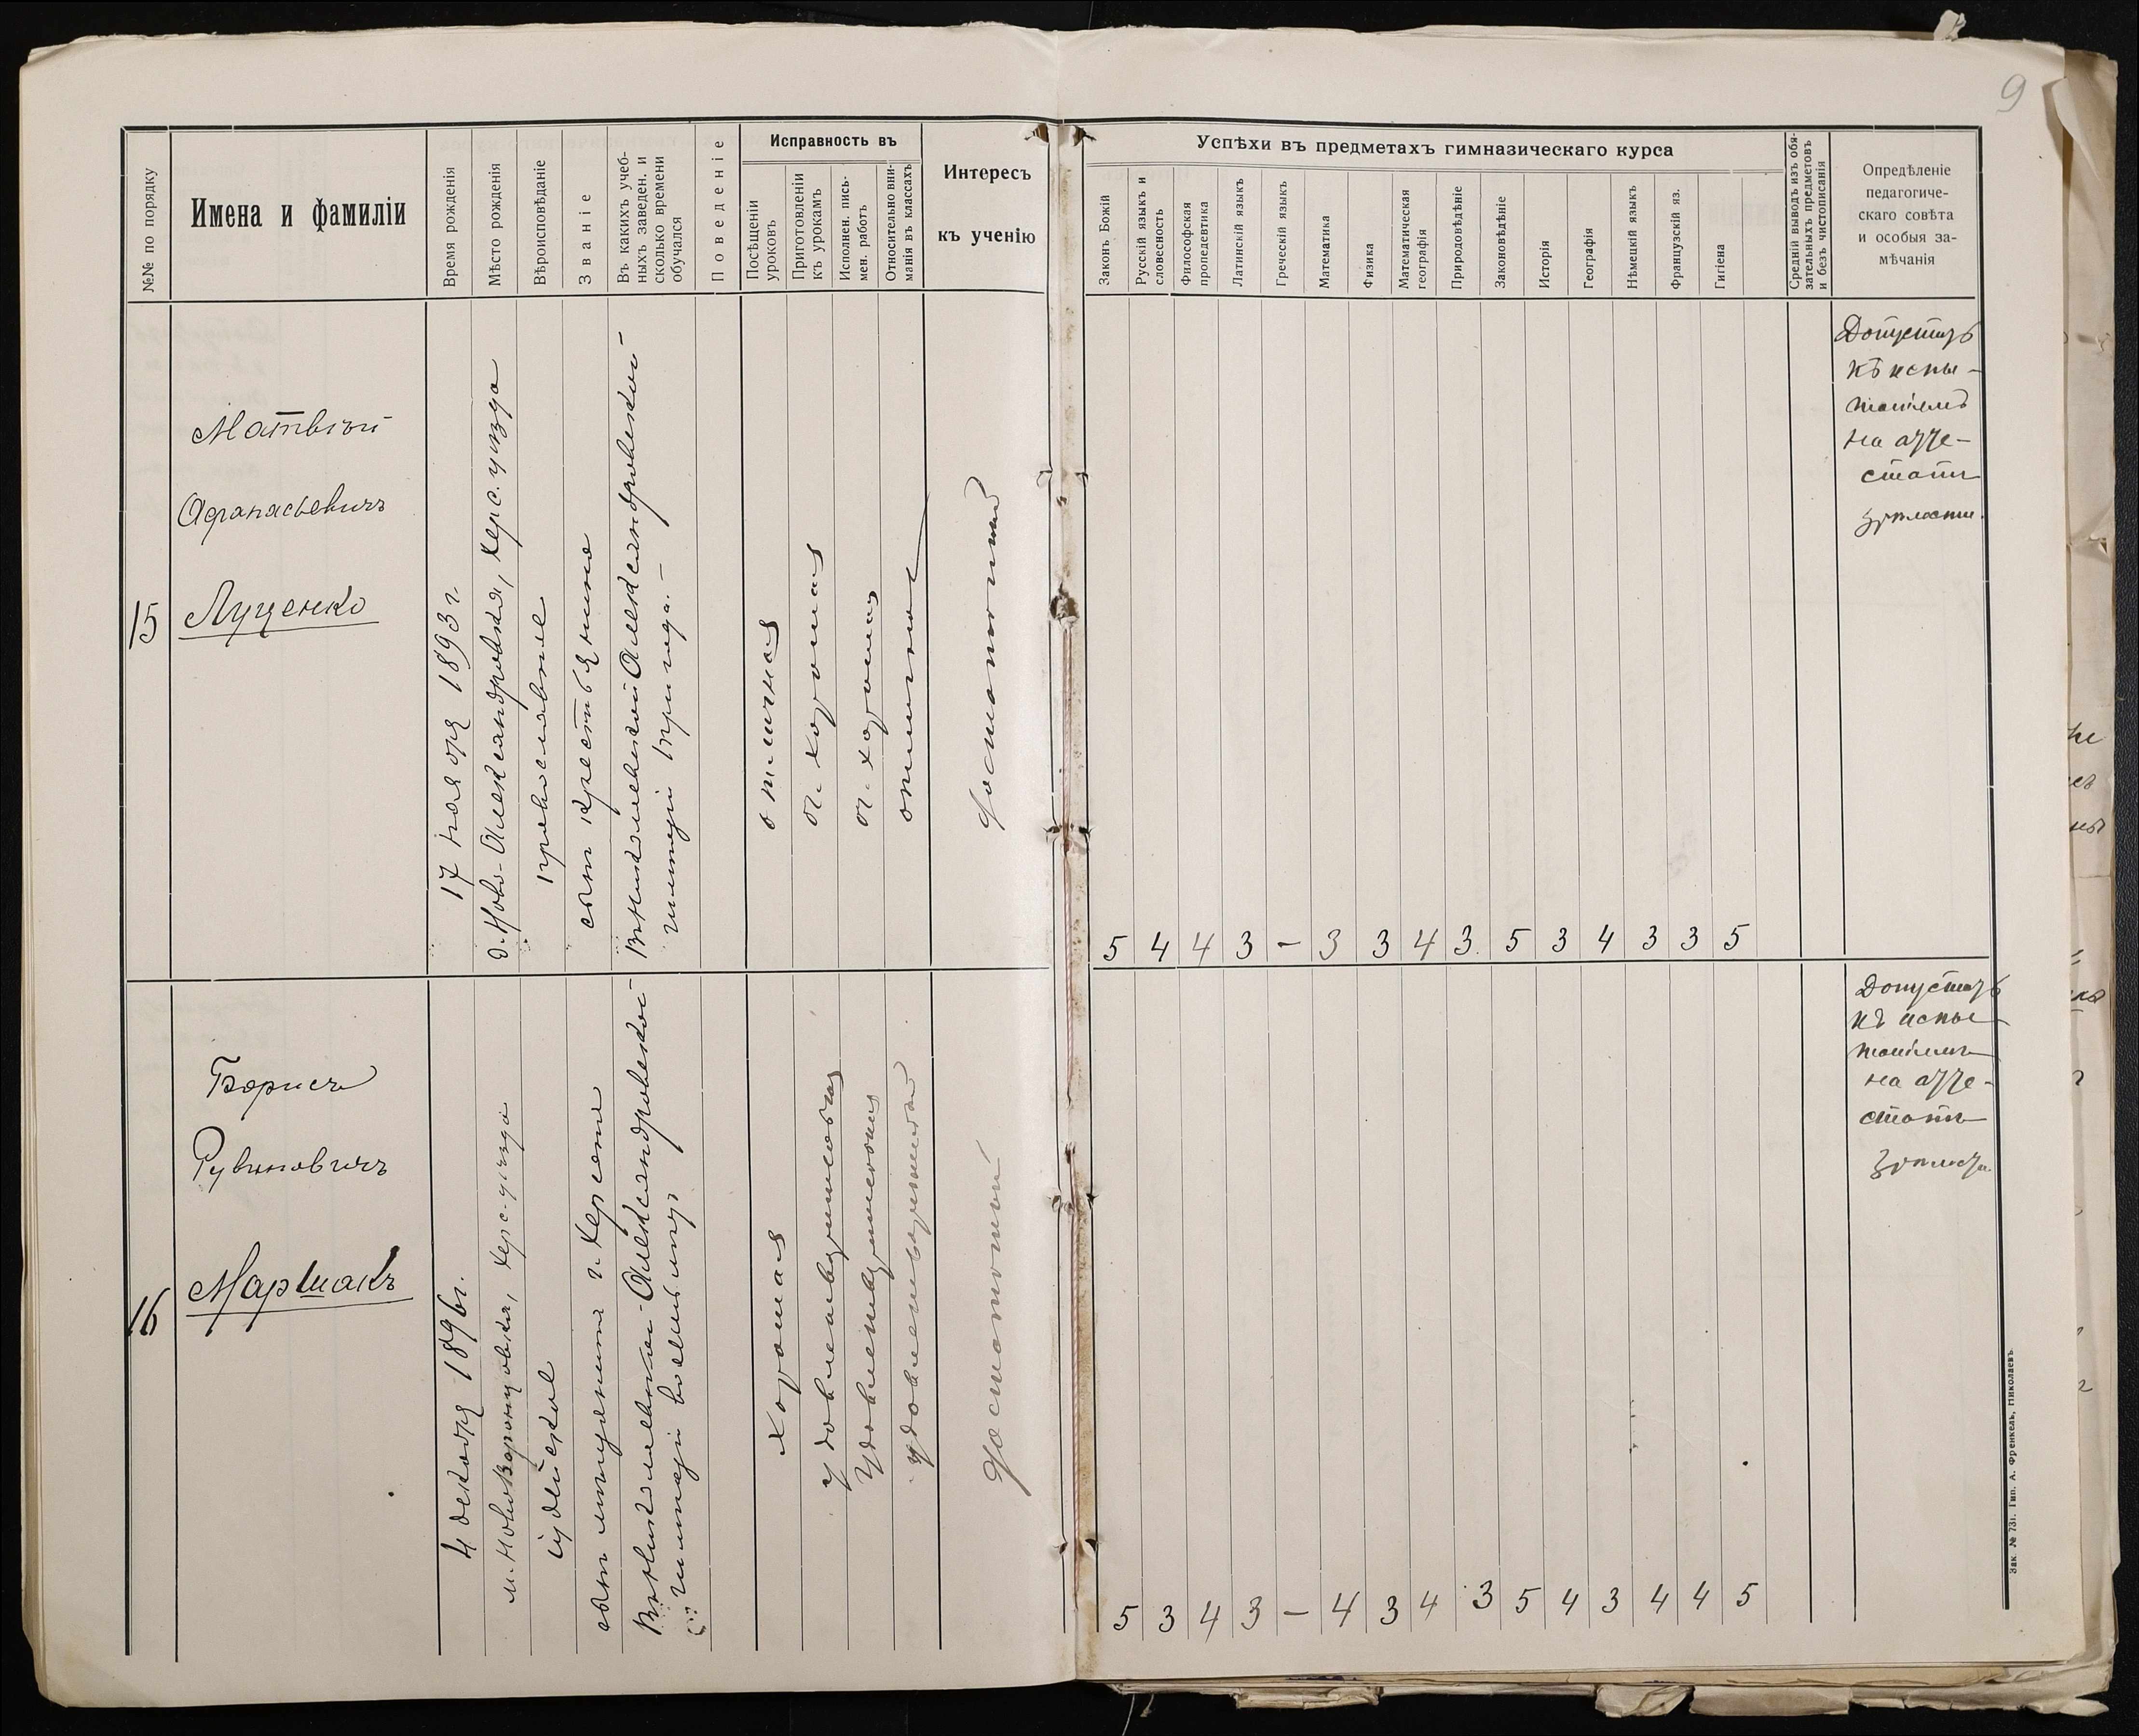 9
№№ по порядку
Имена и фамиліи
Время рожденія
Мѣсто рожденія
Вѣроисповѣданіе
Званіе
Въ какихъ учеб-
ныхъ заведен. и
сколько времени
обучался
Поведеніе
Исправность въ
Посѣщеніи
уроковъ
Приготовленіи
къ урокамъ
Исполнен. пись-
мен. работъ
Относительно вни-
манія въ классахъ
Интересъ
къ ученію
Успѣхи въ предметахъ гимназическаго курса
Законъ Божій
Русскій языкъ и
словесность
Философская
пропедевтика
Латинскій языкъ
Греческій языкъ
Математика
Физика
Математическая
географія
Природовѣдѣніе
Законовѣдѣніе
Исторія
Географія
Нѣмецкій языкъ
Французскій яз.
Гигіена
Средній выводъ изъ обя-
зательныхъ предметовъ
и безъ чистописанія
Опредѣленіе
педагогиче-
скаго совѣта
и особыя за-
мѣчанія
15
Матвѣй
Афанасьевичъ
Луценко
17 ноября 1893 г.
д. Ново-Александровка, Херс. уѣзда
православное
сынъ крестьянина
Въ Николаевской Александровской
гимназіи
отличная
оч. хорошая
оч. хорошая
отличное
достаточный
5 4 4 3 – 3 3 4 3 5 3 4 3 3 5
Допустить
къ испы-
таніямъ
на атте-
статъ
зрѣлости.
16
Борисъ
Рувиновичъ
Маршакъ
4 декабря 1896 г.
м. Нововоронцовка, Херс. уѣзда
іудейское
сынъ мѣщанина г. Херсона
Въ Николаевской-Александровской
гимназіи восемь лѣтъ
хорошая
удовлетворительная
удовлетворительная
удовлетворительное
достаточный
5 3 4 3 – 4 3 4 3 5 4 3 4 4 5
Допустить
къ испы-
таніямъ
на атте-
статъ
зрѣлости
Зак. № 731. Тип. А. Френкель, Николаевъ